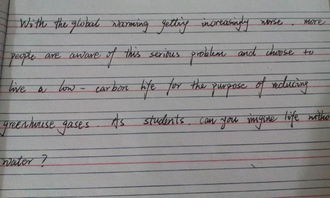 With the global warming getting increasingly worse, more
people are aware of this serious problem and choose to
live a low-carbon life for the purpose of reducing
greenhouse gases. As students, can you imgine life witho
water?